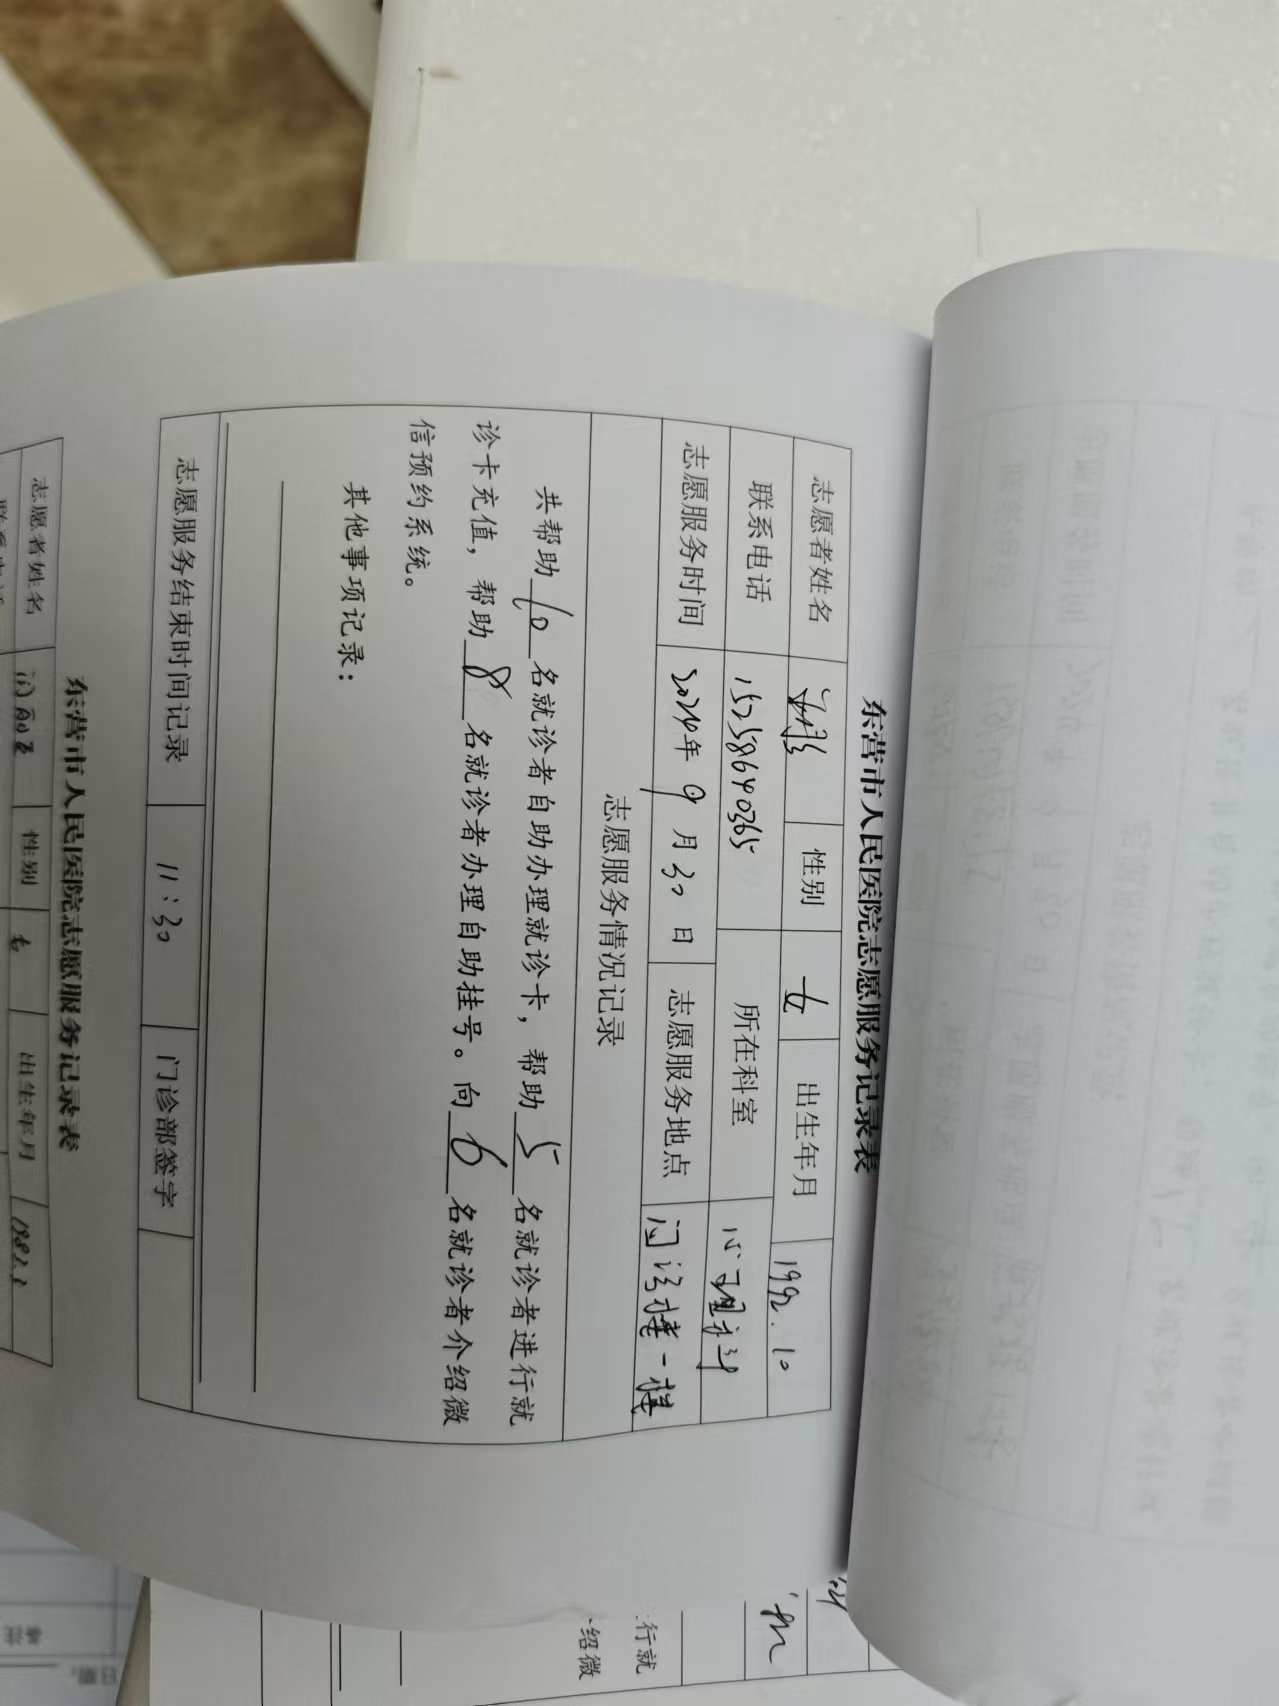 东营市人民医院志愿服务记录表
志愿者姓名 性别 女 出生年月 1992.10
联系电话 15258640365 所在科室 心理科
志愿服务时间 2024年 9 月 30 日 志愿服务地点 门诊楼一楼
志愿服务情况记录
共帮助 10 名就诊者自助办理就诊卡，帮助 5 名就诊者进行就
诊卡充值，帮助 8 名就诊者办理自助挂号。向 6 名就诊者介绍微
信预约系统。
其他事项记录：
志愿服务结束时间记录 11:30 门诊部签字
东营市人民医院志愿服务记录表
志愿者姓名 性别 出生年月
行就
绍微
备注
日期